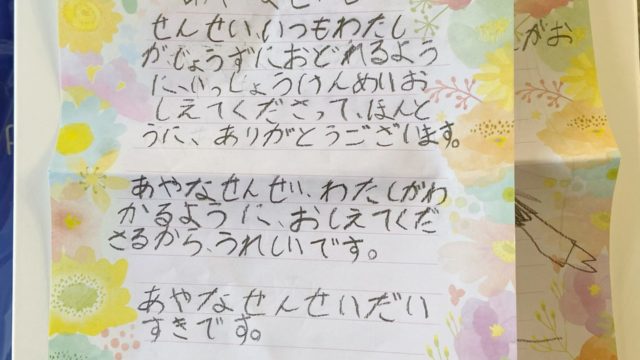 せんせい、いつもわたし
がじょうずにおどれるよう
に、いっしょうけんめいお
しえてくださって、ほんと
うに、ありがとうございます。
あやなせんせい、わたしがわ
かるように、おしえてくだ
さるから、うれしいです。
あやなせんせいだい
すきです。
がお